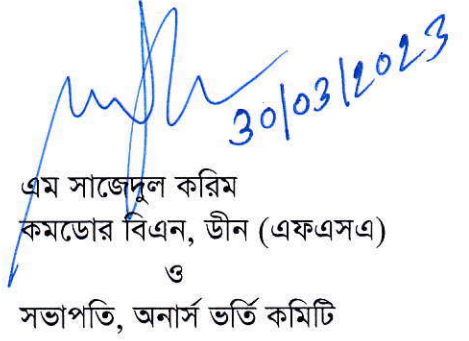 30/03/2023
এম সাজেদুল করিম
কমডোর বিএন, ডীন (এফএসএ)
ও
সভাপতি, অনার্স ভর্তি কমিটি